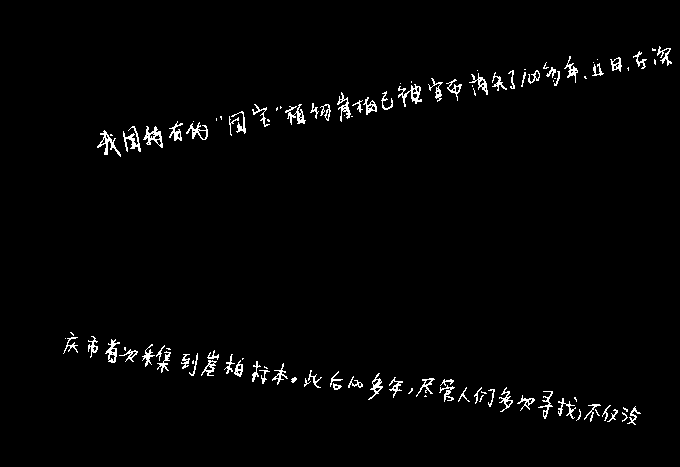 我国特有的“国宝”植物崖柏已被宣布消失了100多年。近日,在深
庆市首次采集到崖柏标本。此后100多年,尽管人们多次寻找,不仅没